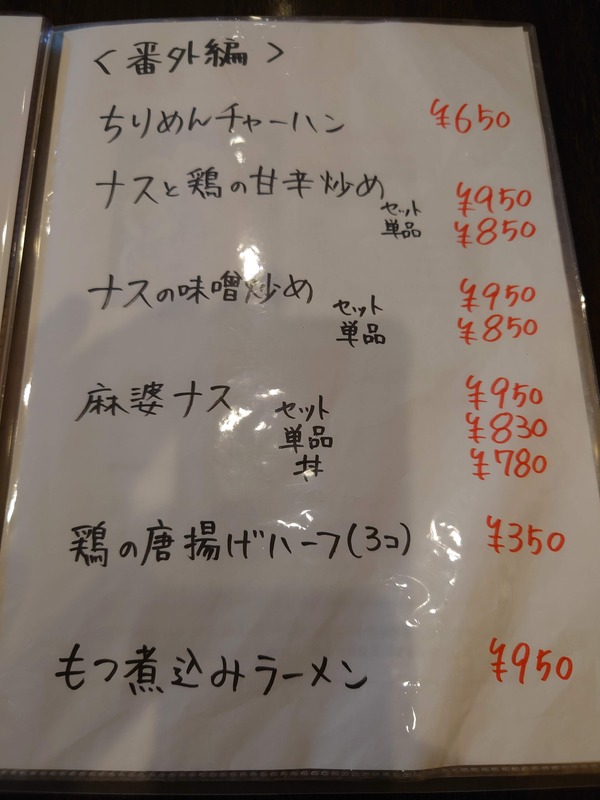 <番外編>
ちりめんチャーハン ¥650
ナスと鶏の甘辛炒め
セット ¥950
単品 ¥850
ナスの味噌炒め
セット ¥950
単品 ¥850
麻婆ナス
セット ¥950
単品 ¥830
丼 ¥780
鶏の唐揚げハーフ(3コ) ¥350
もつ煮込みラーメン ¥950